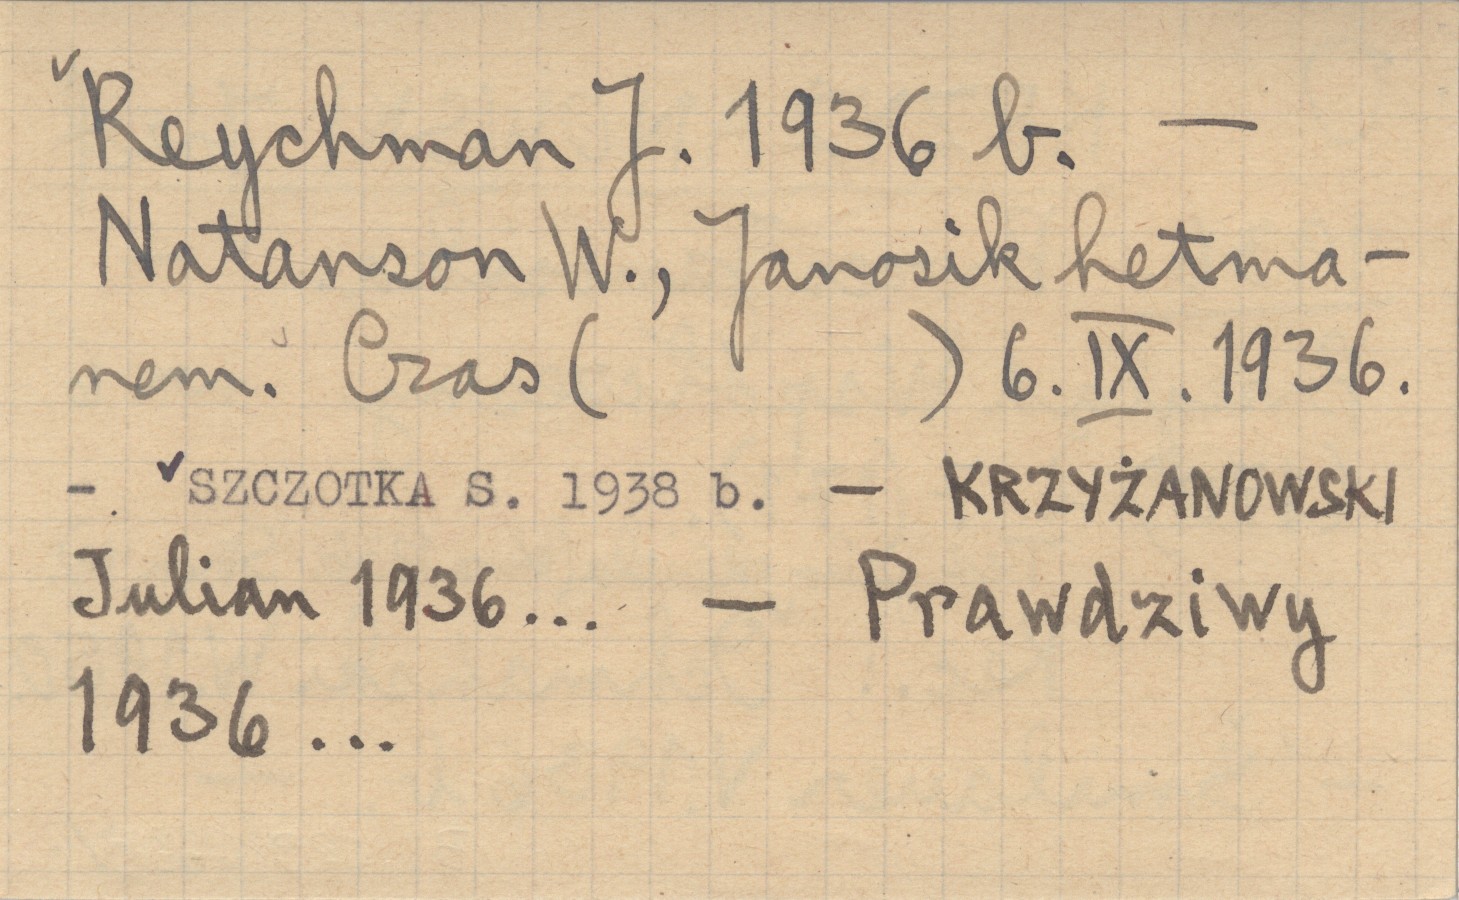 ✓Reychman J. 1936 b. —
Natanson W., Janosik hetma-
nem. Czas ( ) 6. IX. 1936.
- ✓SZCZOTKA S. 1938 b. — KRZYŻANOWSKI
Julian 1936... — Prawdziwy
1936 ...